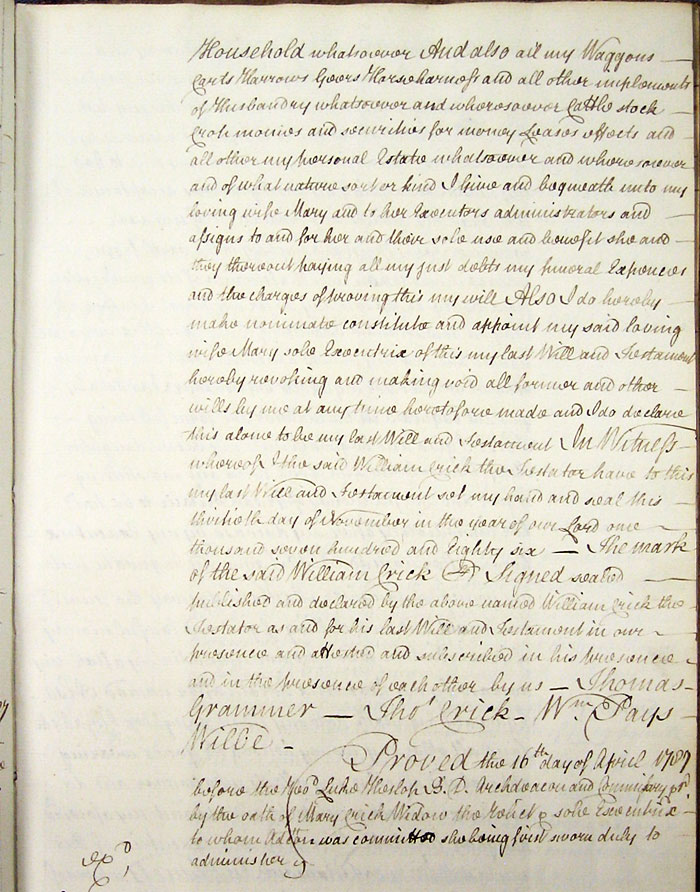 Household whatsoever And also all my Waggons
Carts Harrows Geers Horseharness and all other implements
of Husbandry whatsoever and wheresoever Cattle stock
Crop monies and securities for money Leases effects and
all other my personal Estate whatsoever and wheresoever
and of what nature sort or kind I Give and bequeath unto my
loving wife Mary and to her Executors administrators and
assigns to and for her and their sole use and benefit she and
they thereout paying all my just debts my funeral Expences
and the charges of proving this my will Also I do hereby
make nominate constitute and appoint my said loving
wife Mary sole Executrix of this my last Will and Testament
hereby revoking and making void all former and other
wills by me at any time heretofore made and I do declare
this alone to be my last Will and Testament In Witness
whereof I the said William Crick the Testator have to this
my last Will and Testament set my hand and seal this
thirtieth day of November in the year of our Lord one
thousand seven hundred and Eighty six — The mark
of the said William Crick Signed sealed
published and declared by the above named William Crick the
Testator as and for his last Will and Testament in our
presence and attested and subscribed in his presence
and in the presence of each other by us — Thomas
Grammer — Thos Crick — Wm Pays
Willie -
Proved the 16th day of April 1787
before the Luke Heslop B. D. Archdeacon and Commissary
by the oath of Mary Crick Widow the Relict & sole Executrix
to whom Adcon was committed she being first sworn duly to
administer
Exd